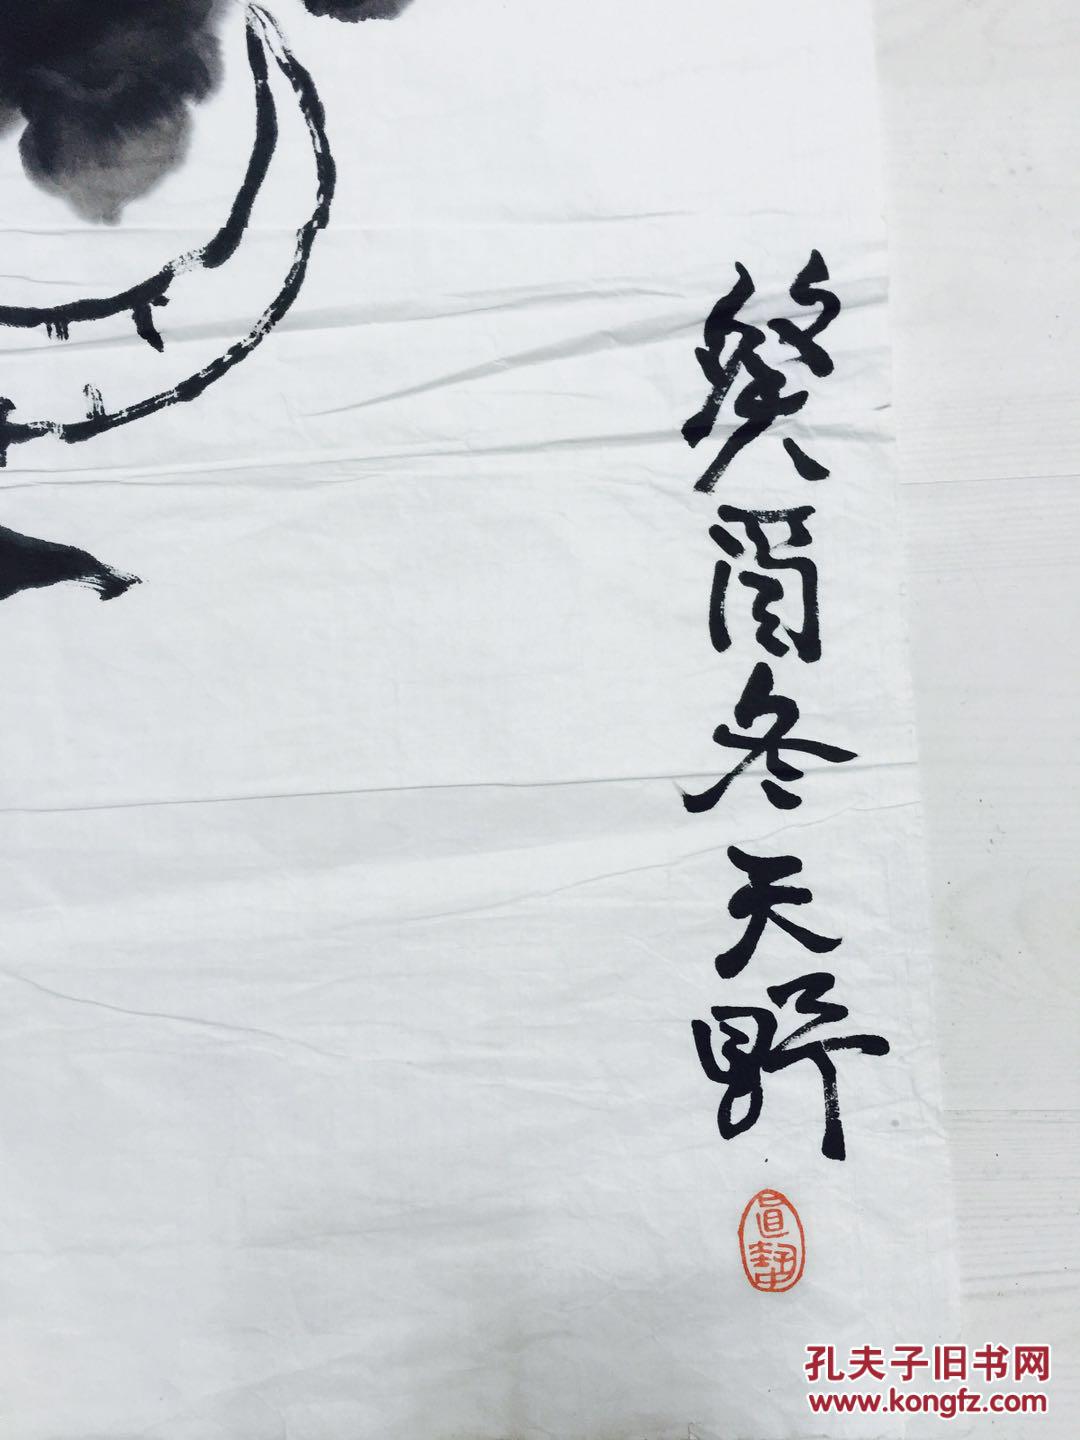 癸酉冬天野
孔夫子旧书网
www.kongfz.com